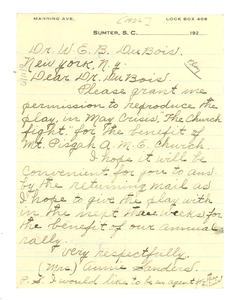 MANNING AVE,
LOCK BOX 408
SUMTER, S. C.
192
Dr. W. E. B. DuBois.
New York, N.Y.
Dear Dr. DuBois.
Please grant me
permission to reproduce the
play, in May Crisis, "The Church
fight," for the benefit of
Mt. Pisgah A. M. E. Church.
I hope it will be
convenient for you to ans.
by the returning mail as
I hope to give the play with
in the next three weeks for
the benefit of our annual
rally.
Very respectfully,
(Mrs) Annie Sanders.
P. S. I would like to be an agent